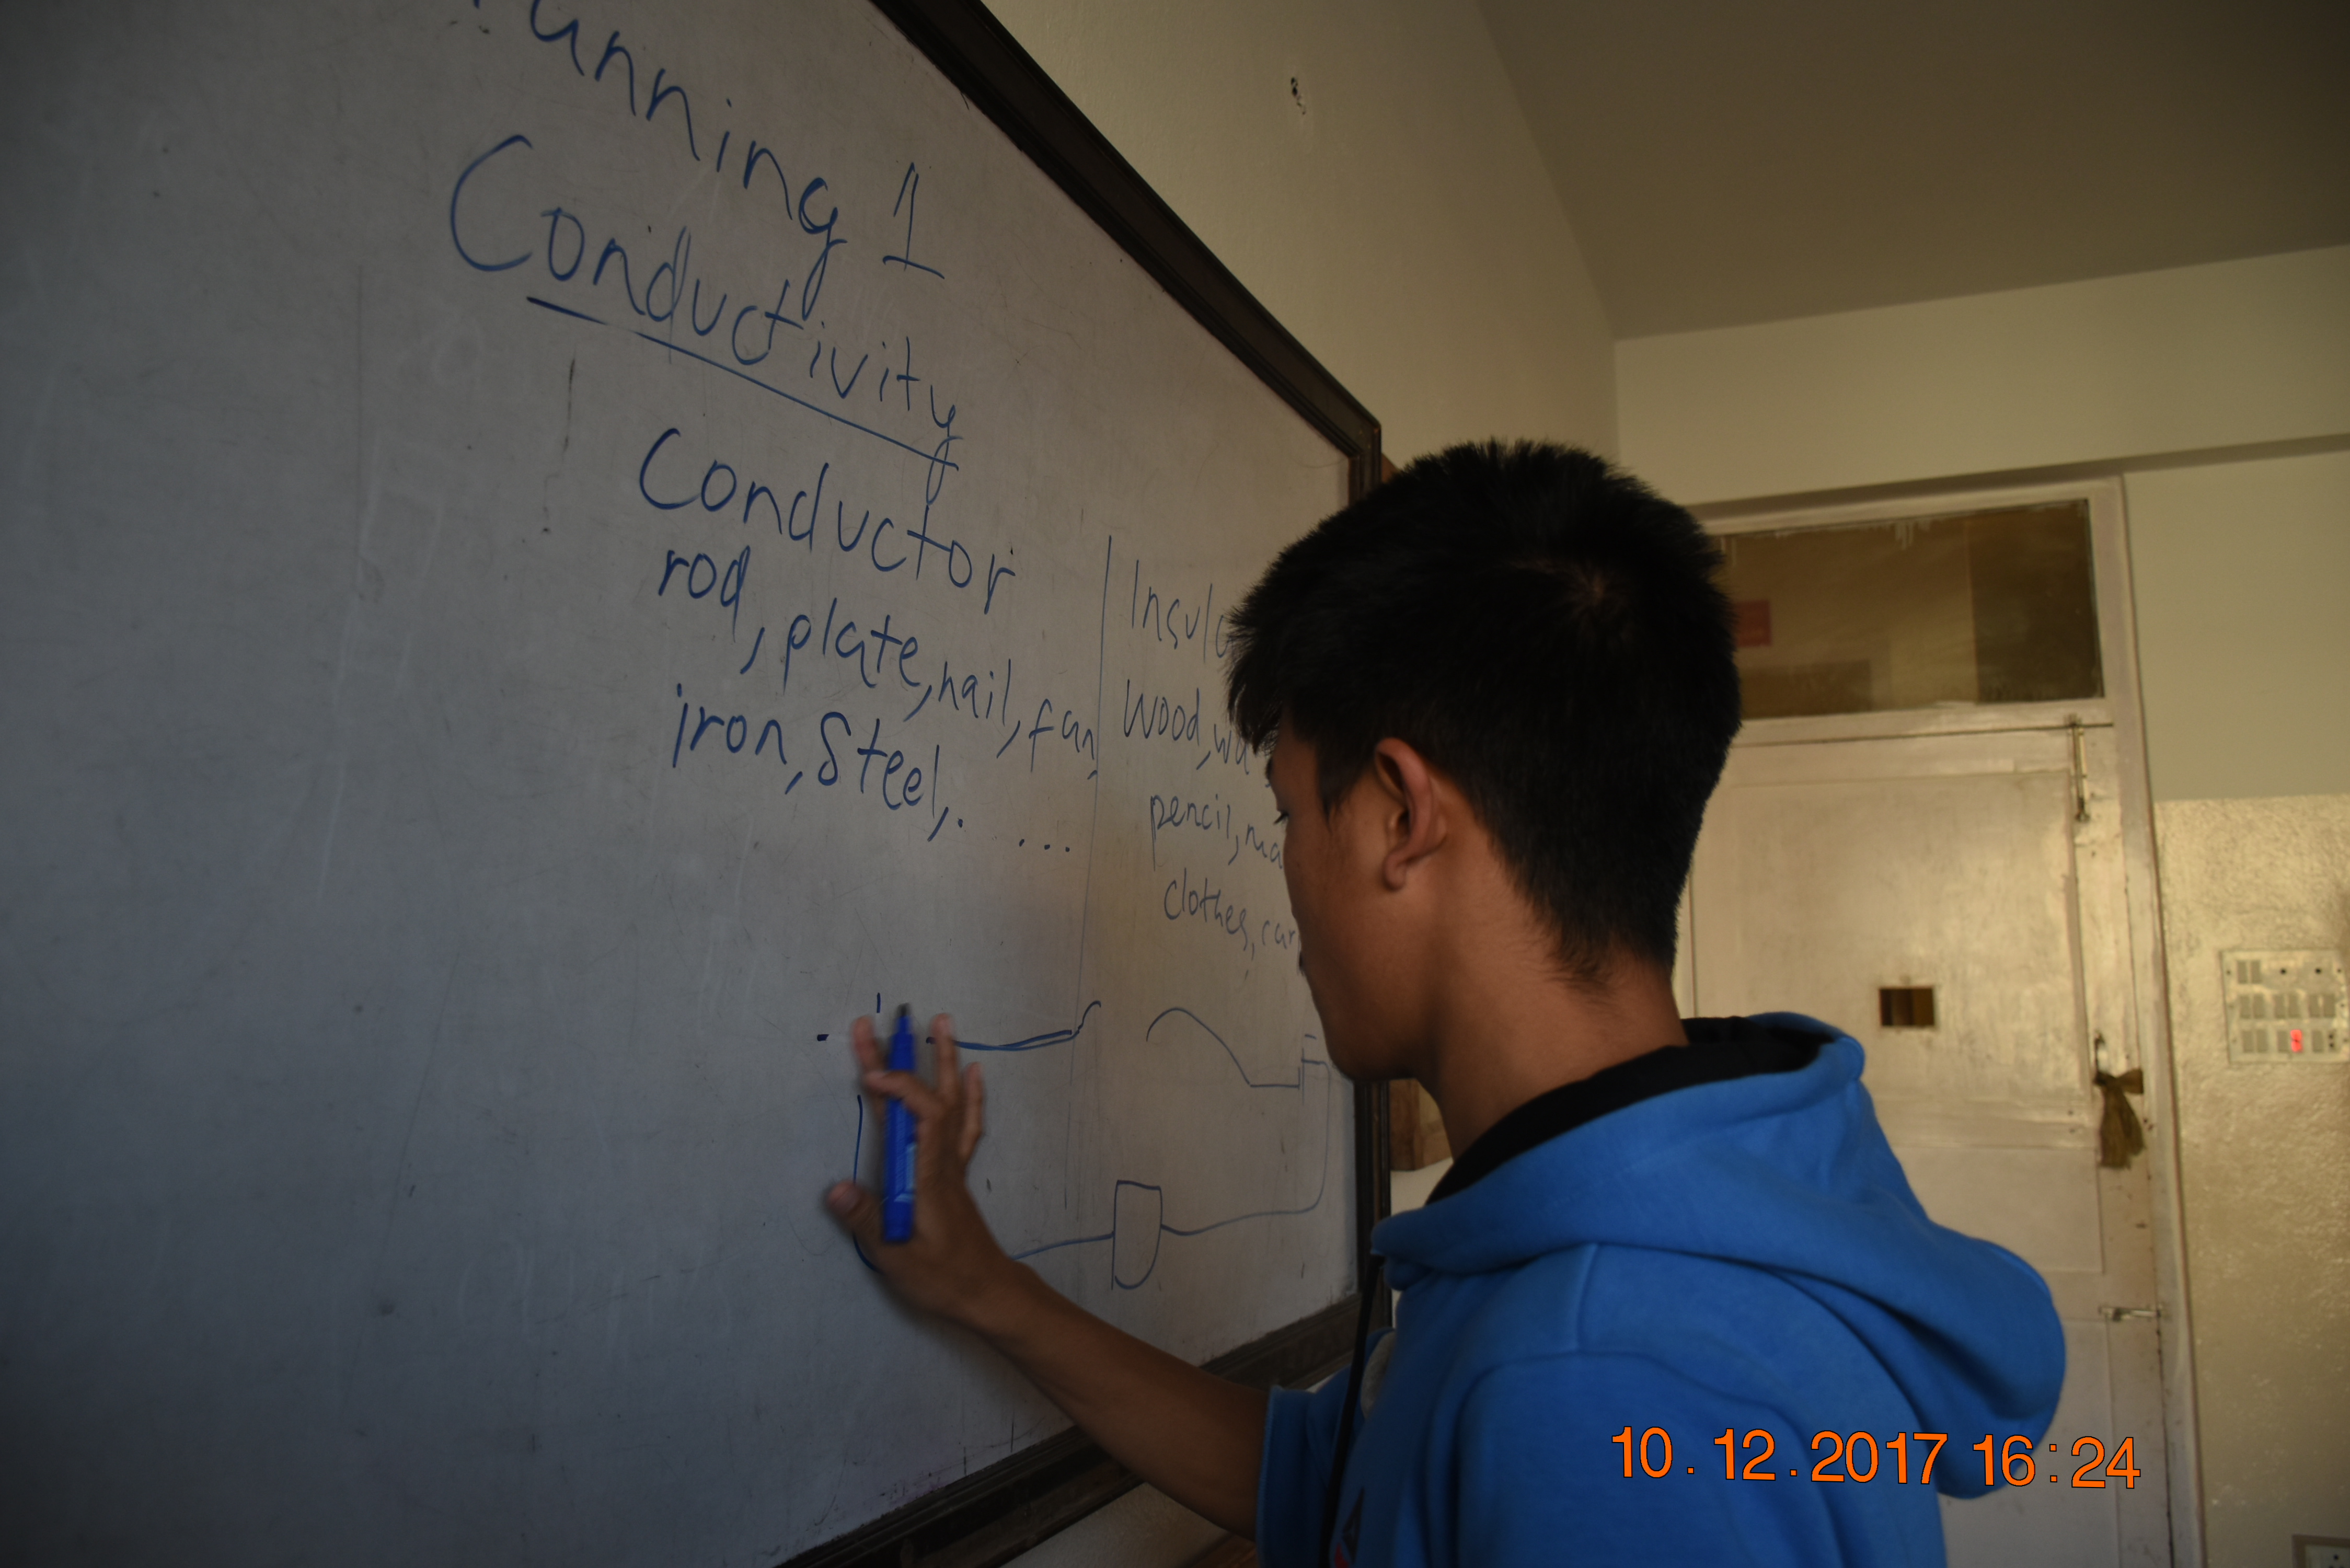 Conductivity
Conductor
rod, plate, nail, fan,
iron, Steel, . ...
Wood,
pencil,
Clothes,
10.12.2017 16:24